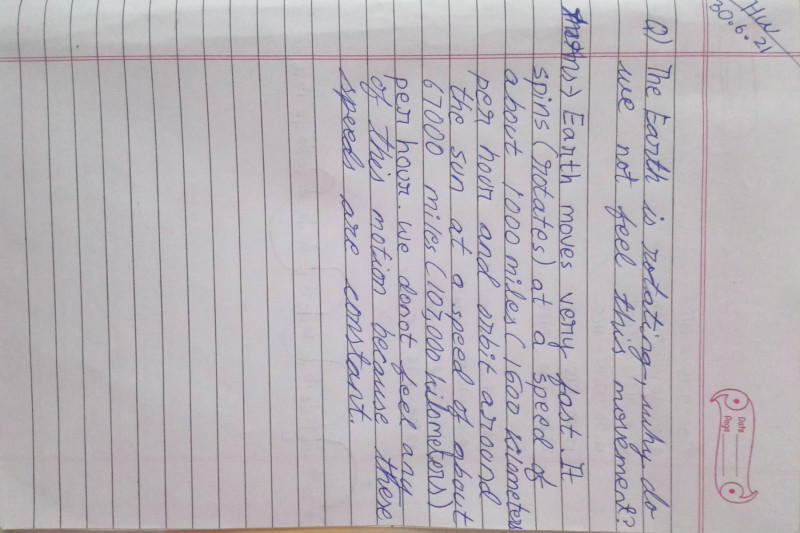 HW
30.6.21
Date
Page
Q) The Earth is rotating, why do
we not feel this movement?
Ans → Earth moves very fast. It
spins (rotates) at a speed of
about 1000 miles (1600 kilometers
per hour and orbit around
the sun at a speed of about
67000 miles (107,000 kilometers)
per hour. We donot feel any
of this motion because these
speeds are constant.